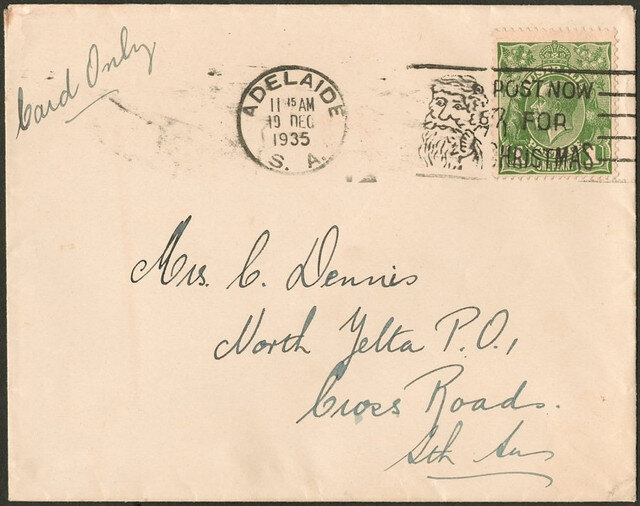 Card Only
ADELAIDE
11 45 AM
19 DEC
1935
S. A.
POST NOW
FOR
CHRISTMAS
Mrs. C. Dennis
North Yelta P.O.,
Cross Roads.
Sth Aus